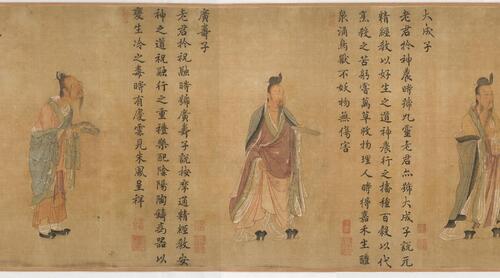 大成子
老君扵神農時號九靈老君亦號大成子說元
精經教以好生之道神農行之播種百穀以代
烹殺之苦躬嘗萬草救物理人時得嘉禾生醴
泉涌鳥獸不妖物無傷害
廣壽子
老君扵祝融時號廣壽子說按摩通精經教安
神之道祝融行之重禮樂配陰陽陶鑄為器以
變生冷之毒時有慶雲見朱鳳呈祥